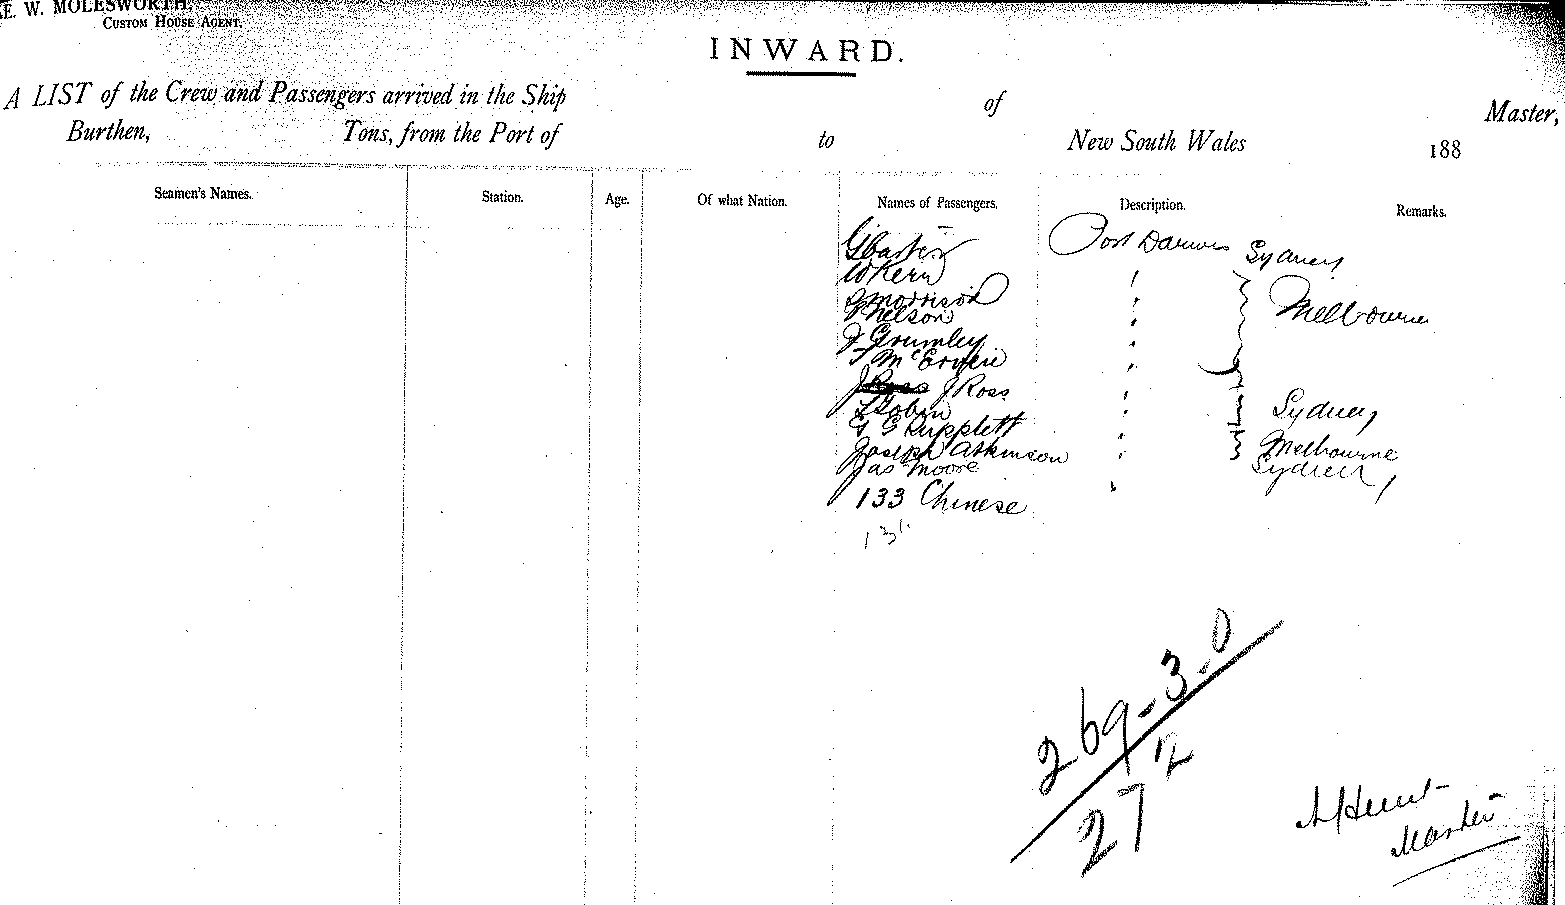 E. W. MOLESWORTH,
CUSTOM HOUSE AGENT.
INWARD.
A LIST of the Crew and Passengers arrived in the Ship of Master,
Burthen, Tons, from the Port of to New South Wales 188
Seamen's Names. Station. Age. Of what Nation. Names of Passengers. Description. Remarks.
Port Darwin Sydney
W Kern
Morrison Melbourne
Nelson
F Grumley
J Ross
Tobin Sydney
G G Rupplett
Joseph Atkinson Melbourne
Jas Moore Sydney
133 Chinese
269-3-0
27 12
Master